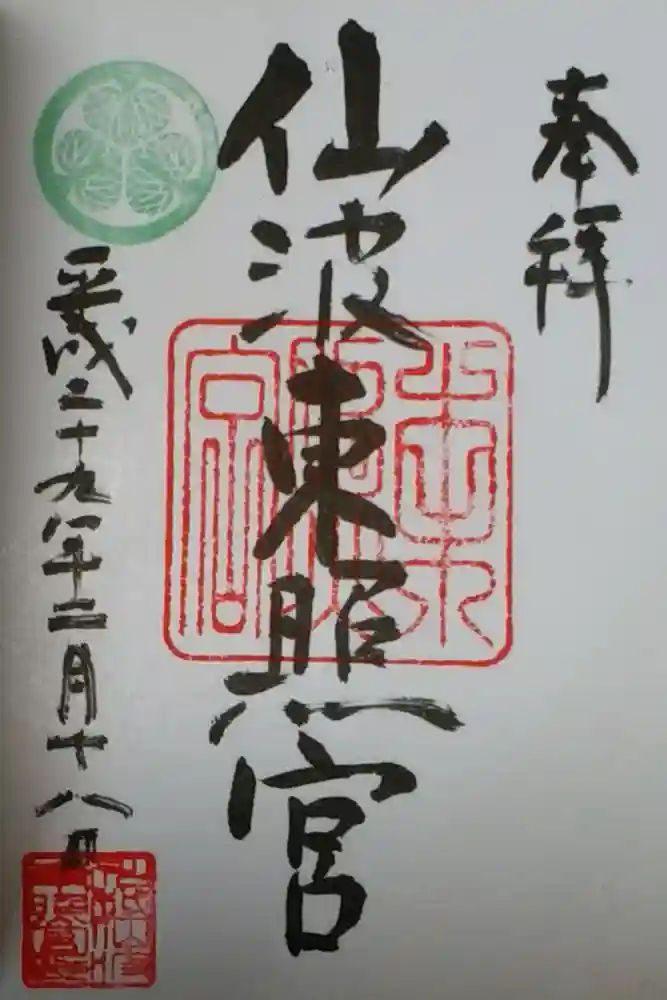 奉拝
仙波東照宮
東照宮
平成二十九年十二月十八日